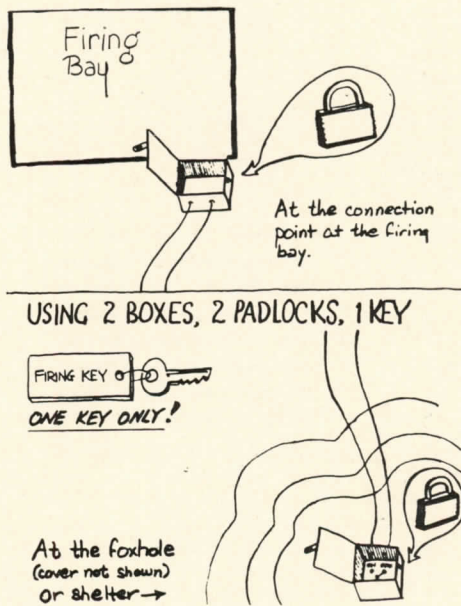 Firing
Bay
At the connection
point at the firing
bay.
USING 2 BOXES, 2 PADLOCKS, 1 KEY
FIRING KEY
ONE KEY ONLY!
At the foxhole
(cover not shown)
or shelter →